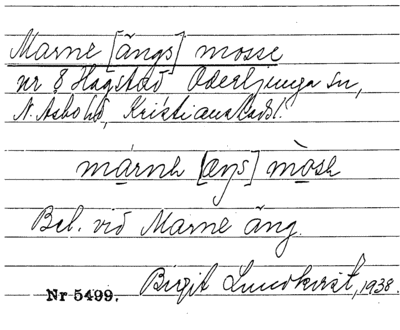 Marne [ängs] mosse
nr 8 Hagstad Oderljunga sn,
N. Åsbo hd, Kristianstads l.
márnə [æŋs] mòsə
Bel. vid Marne äng.
Birgit Lundkvist, 1938.
Nr 5499.